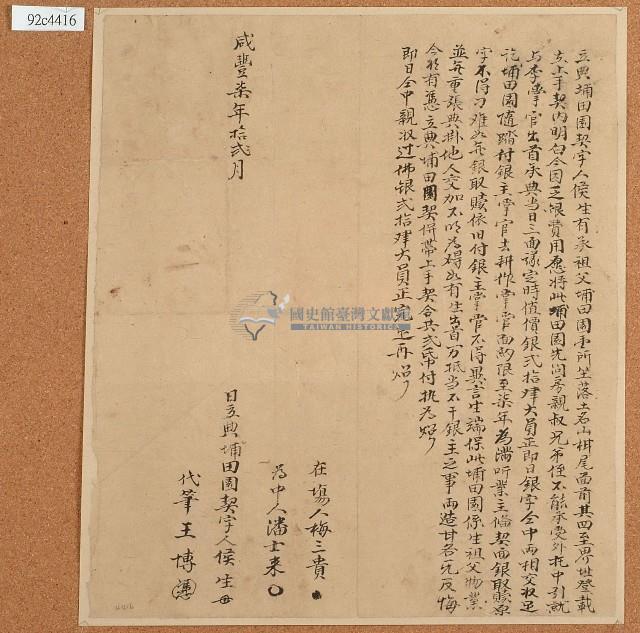 92c4416
立典埔田園契字人侯生有承祖父埔田園壹所坐落土名山柑尾面前其四至界址登載
在上手契內明白今因乏銀費用愿將此埔田園先問房親叔兄弟侄不能承受外托中引就
与李掌官出首承典當日三面議定時值價銀弍拾肆大員正即日銀字仝中兩相交收足
訖埔田園隨踏付銀主掌官去耕作掌管面約限至柒年為滿听業主偹契面銀取贖原
字不得刁难如無銀取贖依旧付銀主掌管不得異言生端保此埔田園係生祖父物業
並無重張典掛他人交加不明為碍如有生出首一力抵当不干銀主之事両造甘愿各无反悔
今欲有憑立典埔田園契併帶上手契合共弍帋付执為炤
即日仝中親收过佛銀弍拾肆大員正完足再炤
在塲人梅三貴
為中人潘士来
日立典埔田園契字人侯生
代筆王博
咸豐柒年拾弍月
國史館臺灣文獻館
TAIWAN HISTORICA